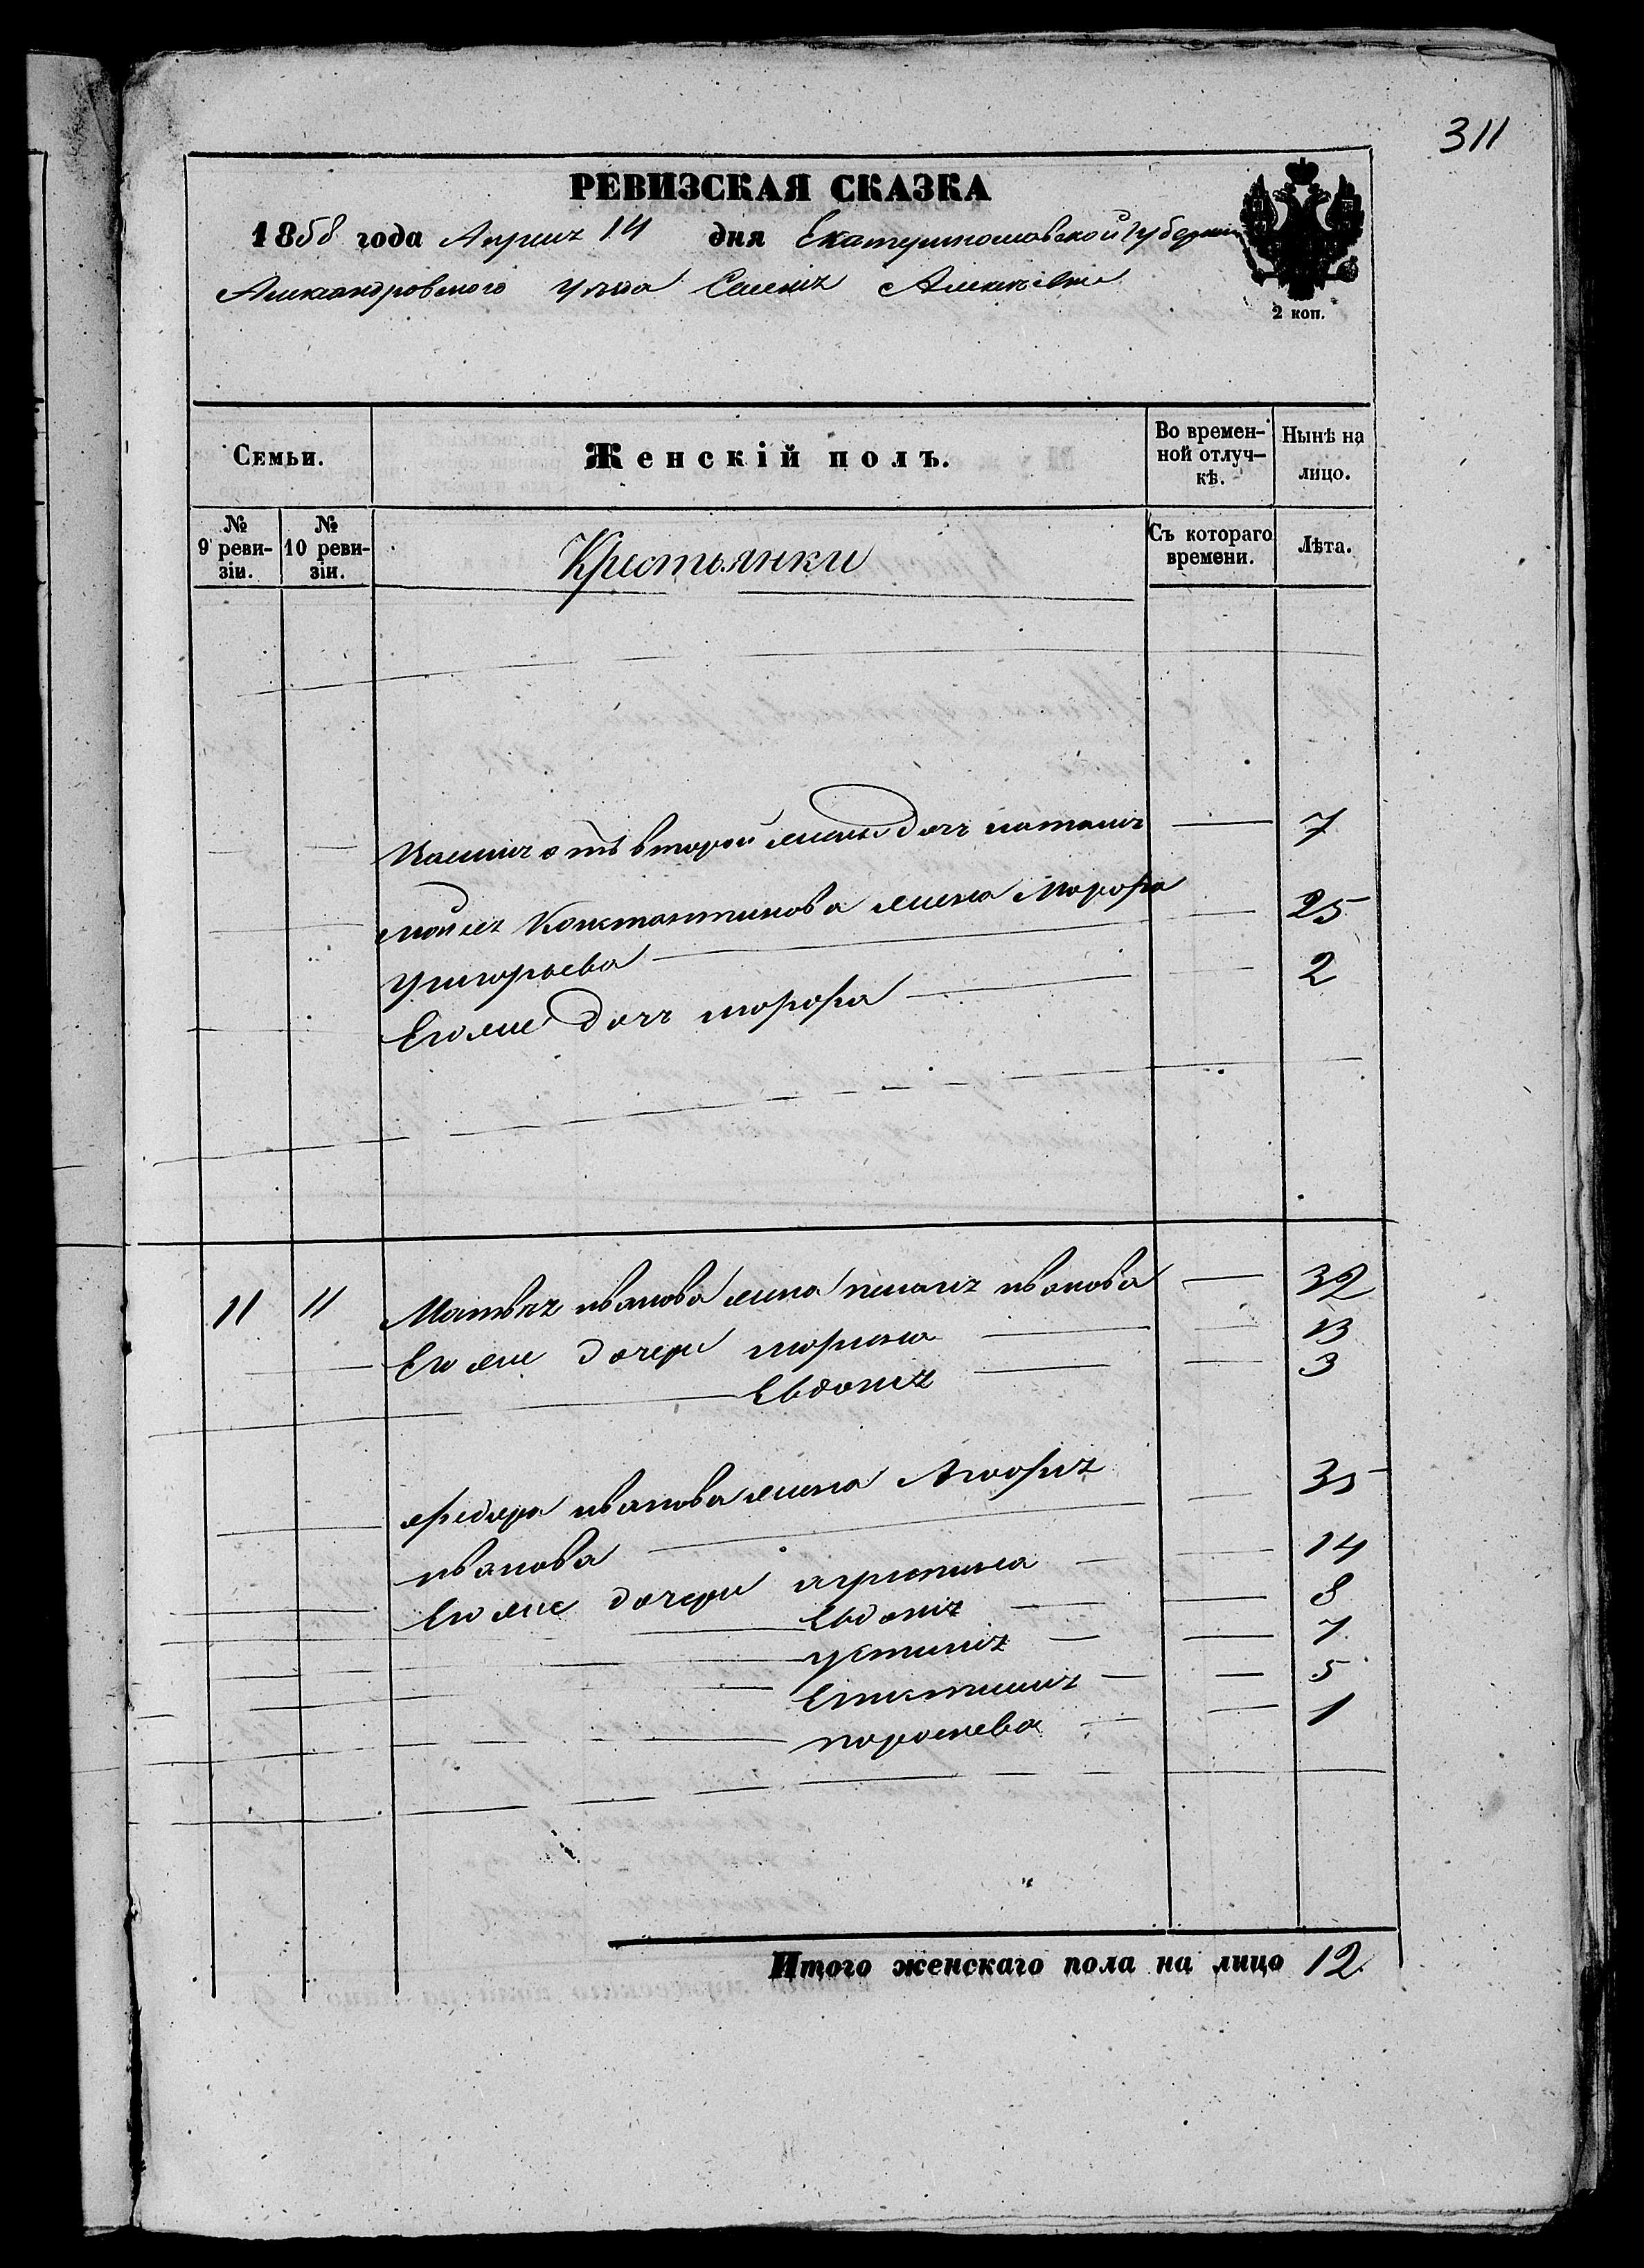 311
РЕВИЗСКАЯ СКАЗКА
1858 года Априля 14 дня Екатеринославской Губернии
Александровского уезда Селения Алексеевки
2 коп.
Семьи.
Женскій полъ.
Во времен-
ной отлуч-
кѣ.
Нынѣ на
лицо.
№
9 реви-
зіи.
№
10 реви-
зіи.
Крестьянки
Съ котораго
времени.
Лѣта.
отъ второй жены дочь наталия — 7
Константинова жена Марфа
григорьева — 25
Его же дочь марфа — 2
11 11 Матвея иванова жена пелагия иванова — 32
Его же дочери марина — 13
Евдокия — 3
федора иванова жена Агафия
иванова — 35
Его же дочери агрипина — 14
Евдокия — 8
устиния — 7
5
параскева — 1
Итого женскаго пола на лицо 12